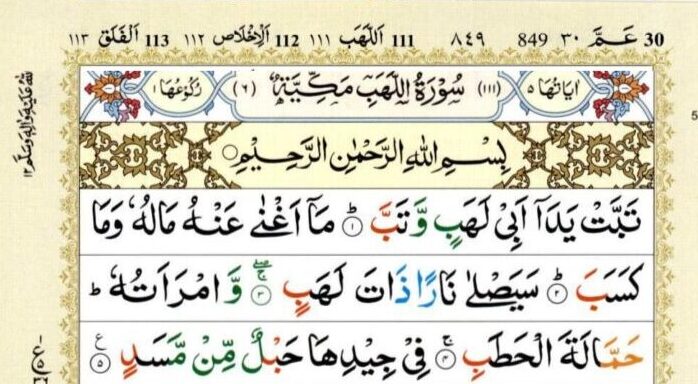 عَمَّ ٣٠ 30 ٨٤٩ 849 اَللَّهَب ١١١ 111 اَلْاِخْلَاص ١١٢ 112 اَلْفَلَق ١١٣ 113
اٰيَاتُهَا ٥ (١١١) سُوْرَةُ اللَّهَبِ مَكِّيَّةٌ (٦) رُكُوْعُهَا ١
بِسْمِ اللّٰهِ الرَّحْمٰنِ الرَّحِيْمِ
تَبَّتْ يَدَاۤ اَبِیْ لَهَبٍ وَّ تَبَّ ؕ۝۱ مَاۤ اَغْنٰی عَنْهُ مَالُهٗ وَمَا
كَسَبَ ؕ۝۲ سَیَصْلٰی نَارًا ذَاتَ لَهَبٍ ۚۖ۝۳ وَّ امْرَاَتُهٗ ؕ
حَمَّالَةَ الْحَطَبِ ۚ۝۴ فِیْ جِیْدِهَا حَبْلٌ مِّنْ مَّسَدٍ ۝۵ ع
5